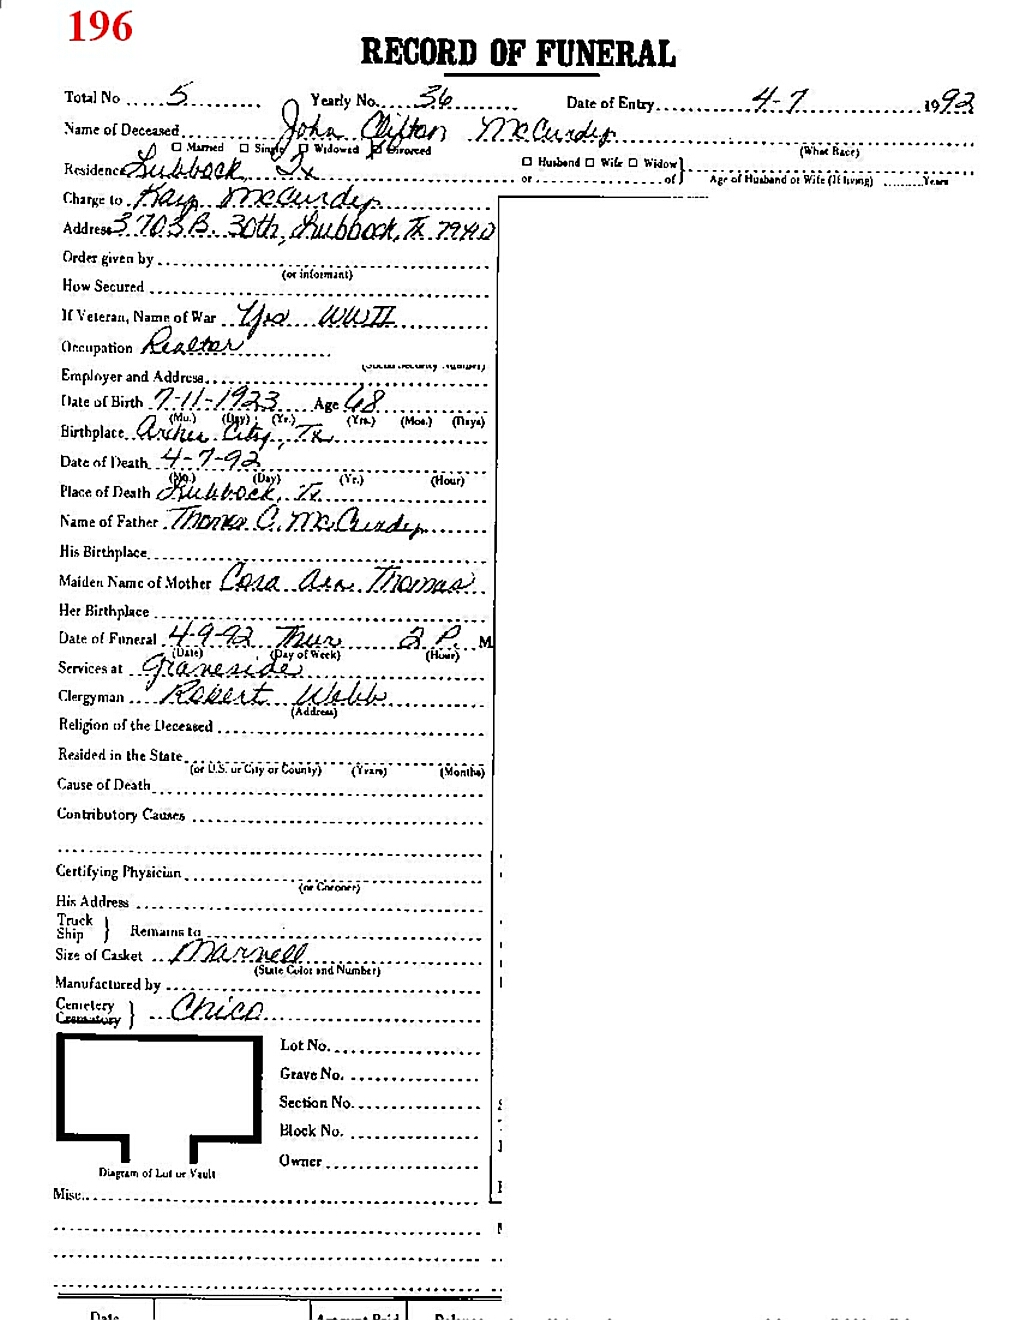 196
RECORD OF FUNERAL
Total No 5 Yearly No. 36 Date of Entry 4-7 1992
Name of Deceased John Clifton McCurdy
☐ Married ☐ Single ☐ Widowed ☑ Divorced (What Race)
Residence Lubbock, Tx ☐ Husband ☐ Wife ☐ Widow }
or of Age of Husband or Wife (If living) Years
Charge to Kay McCurdy
Address 3703B. 30th, Lubbock, Tx 79410
Order given by
(or informant)
How Secured
If Veteran, Name of War Yes WWII
Occupation Realtor
(Social Security Number)
Employer and Address
Date of Birth 7-11-1923 Age 68
(Mo.) (Day) (Yr.) (Yrs.) (Mos.) (Days)
Birthplace Archer City, Tx
Date of Death 4-7-92
(Mo.) (Day) (Yr.) (Hour)
Place of Death Lubbock, Tx
Name of Father Thomas C. McCurdy
His Birthplace
Maiden Name of Mother Cora Ann Thomas
Her Birthplace
Date of Funeral 4-9-92 Thur 2 P. M
(Date) (Day of Week) (Hour)
Services at Graveside
Clergyman Robert Webb
(Address)
Religion of the Deceased
Resided in the State
(or U.S. or City or County) (Years) (Months)
Cause of Death
Contributory Causes
Certifying Physician
(or Coroner)
His Address
Truck
Ship } Remains to
Size of Casket Marnell
(State Color and Number)
Manufactured by
Cemetery
Crematory } Chico
Lot No.
Grave No.
Section No.
Block No.
Owner
Diagram of Lot or Vault
Misc.
Date Amount Paid